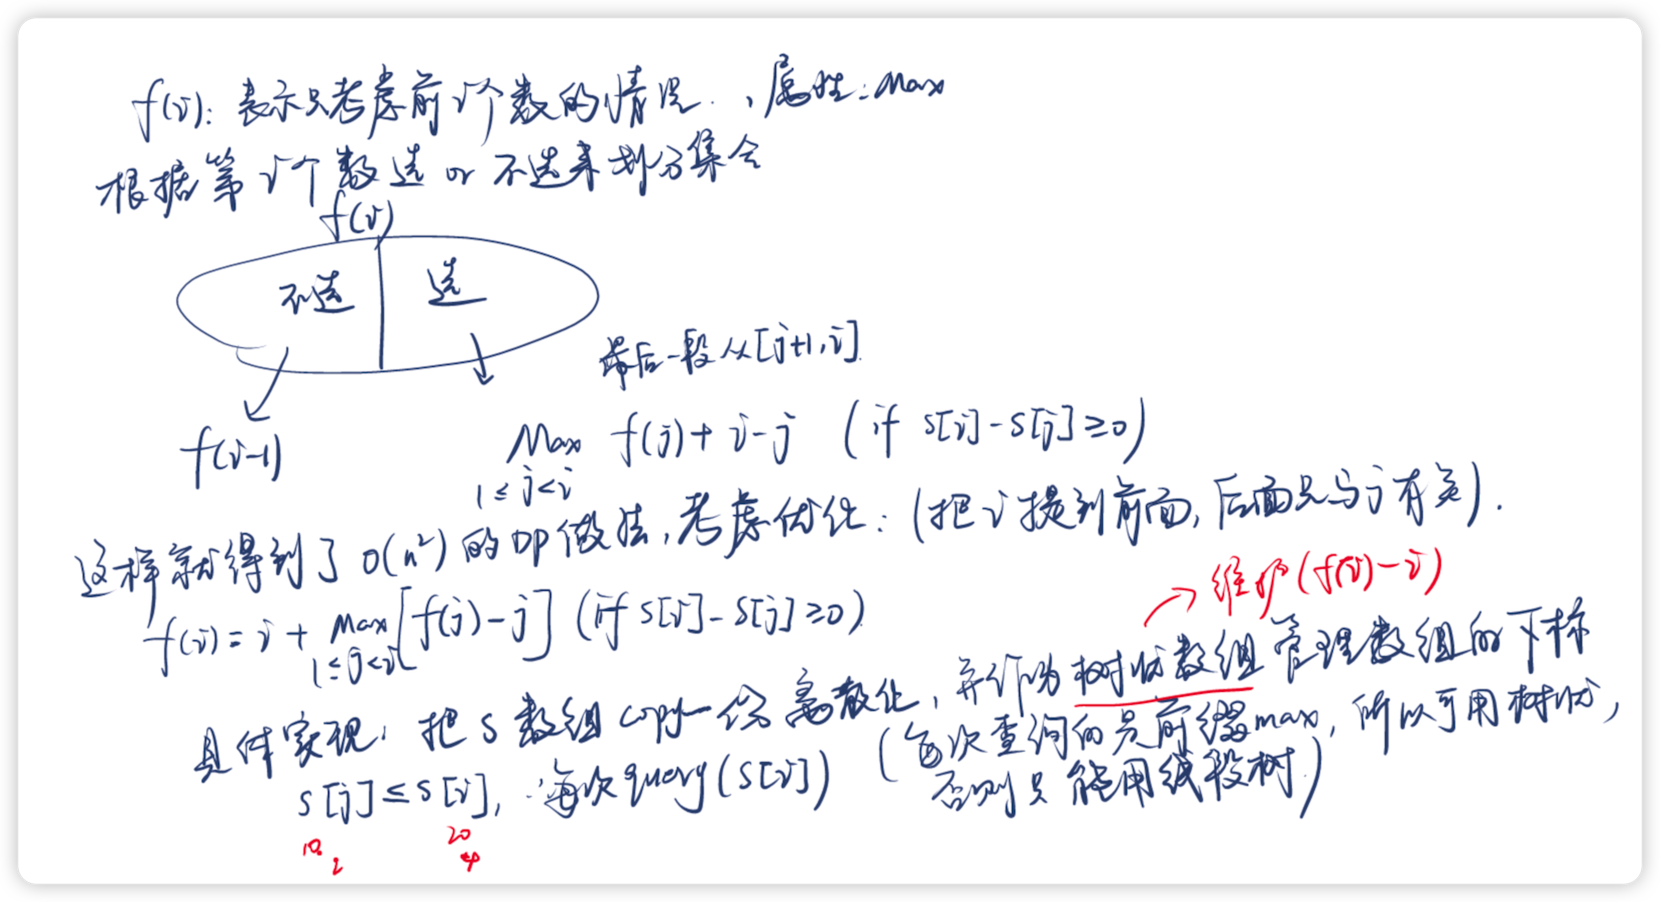 f(i): 表示只考虑前i个数的情况. , 属性: Max
根据第i个数选 or 不选来划分集合
f(i)
不选 选
最后一段从[j+1,i].
f(i-1)
Max f(j)+i-j (if s[i]-s[j]≥0)
1≤j<i
这样就得到了 O(n²) 的DP做法, 考虑优化: (把i提到前面, 后面只与j有关).
→ 维护(f(i)-i)
f(i)= i + Max[f(j)-j] (if s[i]-s[j]≥0)
1≤j<i
具体实现: 把s数组copy一份离散化, 并作为树状数组管理数组的下标
s[j]≤s[i], ∴每次query(s[i]) (每次查询的是前缀max, 所以可用树状,
否则只能用线段树)
10 20
2 4